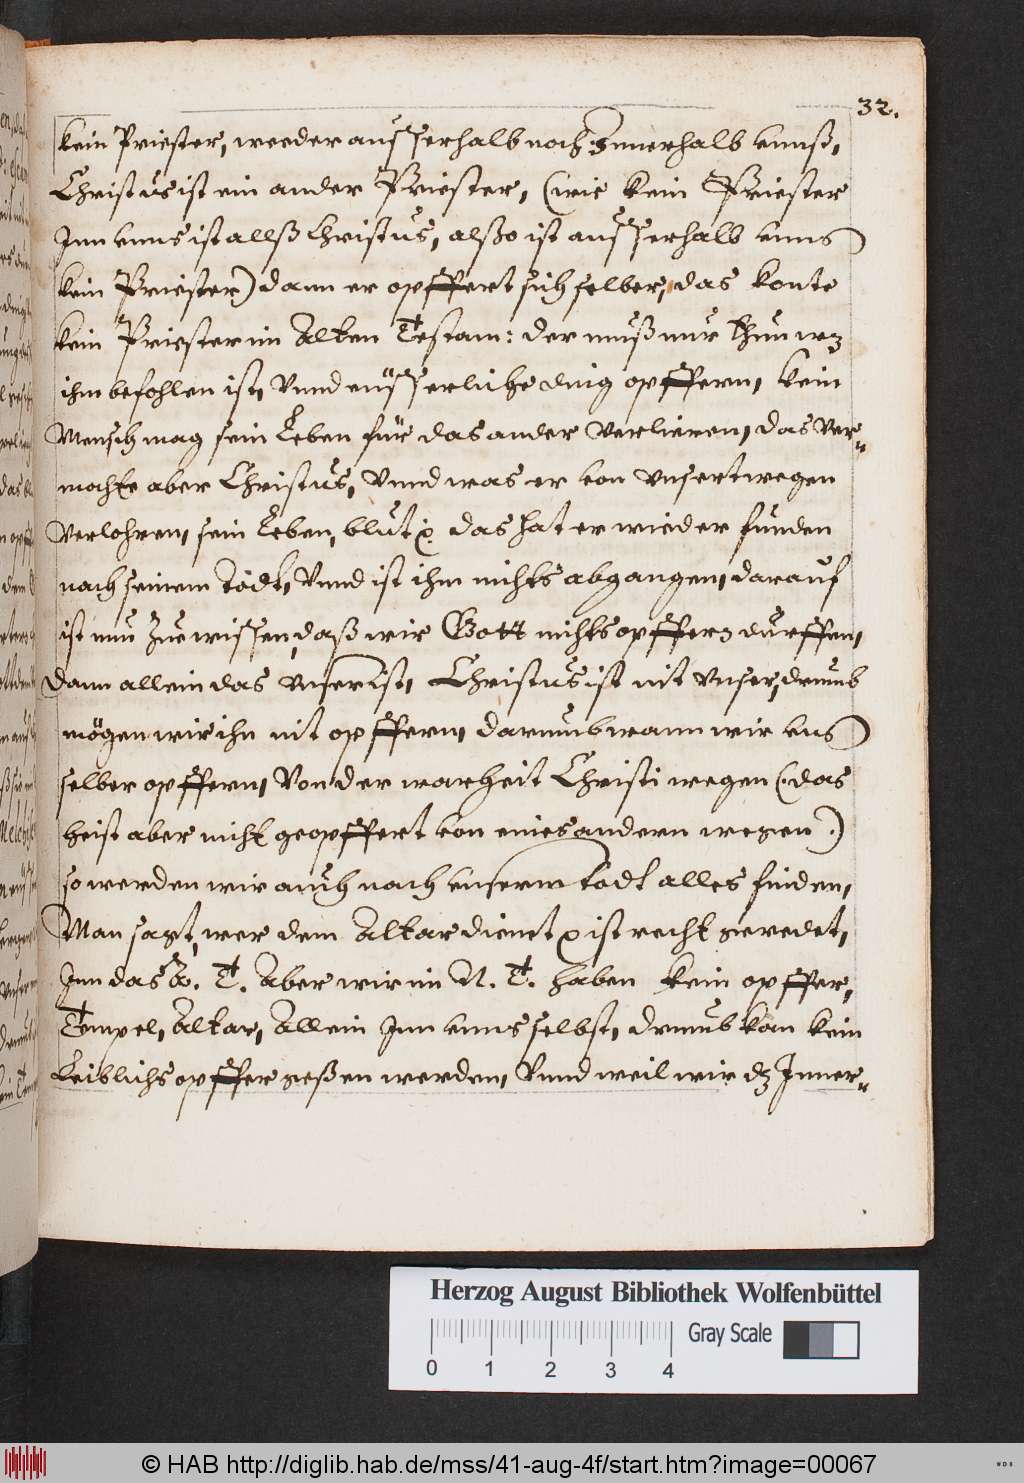 32.
kein Priester, weeder ausserhalb noch Innerhalb unnß,
Christus ist ein ander Priester, (wie kein Priester
Inn unns ist allß Christus, alßo ist ausserhalb unns
kein Priester) dann er opffert sich selber, das konte
kein Priester im Alten Testam: der muß nur thun wz
ihm befohlen ist, Vnnd eüsserliche ding opffern, kein
Mensch mag sein Leben für das ander verlieren, das ver-
mochte aber Christus, Vnnd was er von unsertwegen
verlohren, sein Leben, blut das hat er wieder funden
nach seinem Todt, Vnnd ist ihm nichts abgangen, darauf
ist nun zue wissen, daß wir Gott nichts opffern durffen,
dann allein das unser ist, Christus ist nit unser, drumb
mögen wir ihn nit opffern, darumb wann wir uns
selber opffern, Von der warheit Christi wegen (das
heist aber nicht geopffert von eines andern wegen.)
so werden wir auch nach unserm todt alles finden,
Man sagt, wer dem Altar dienet ist recht geredet,
Inn das A. T. Aber wir im N. T. haben kein opffer,
Tempel, Altar, Allein Inn unns selbst, drumb kan kein
Leiblichs opffer geßen werden, Vnnd weil wir dz Inner-
Herzog August Bibliothek Wolfenbüttel
Gray Scale
0 1 2 3 4
© HAB http://diglib.hab.de/mss/41-aug-4f/start.htm?image=00067